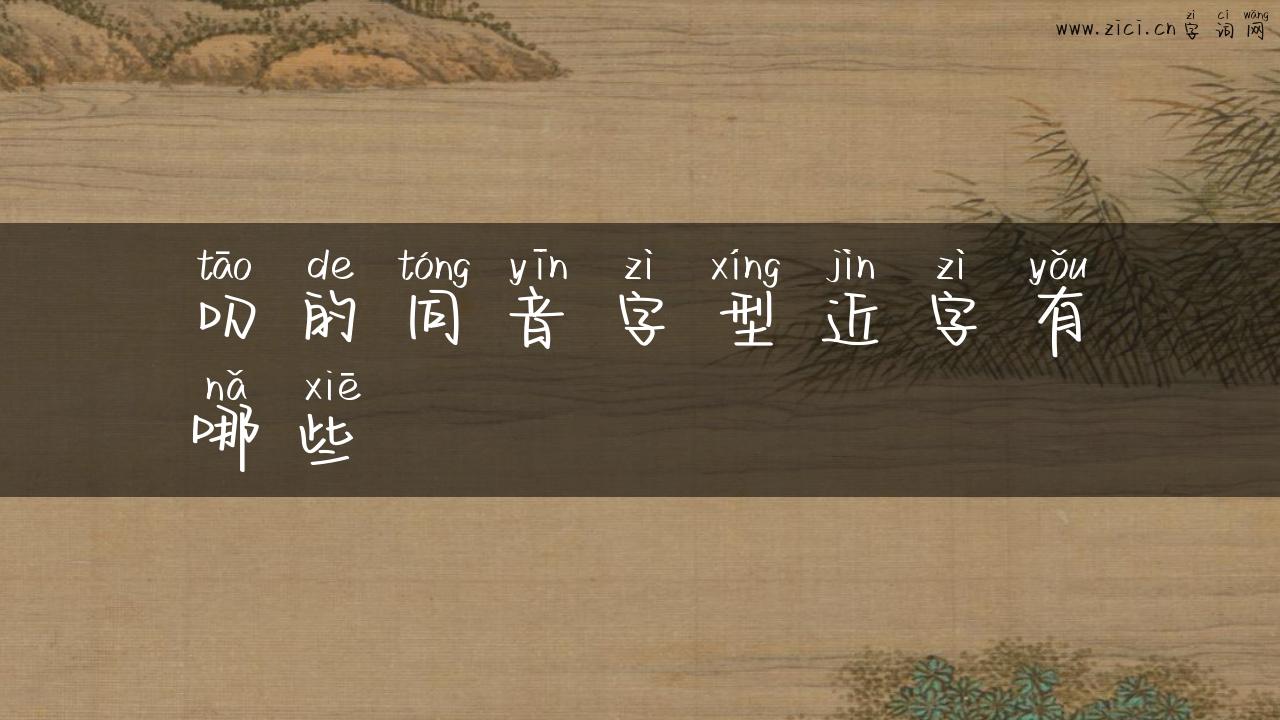 www.zici.cn
zì cí wǎng
字词网
tāo de tóng yīn zì xíng jìn zì yǒu
叨的同音字型近字有
nǎ xiē
哪些